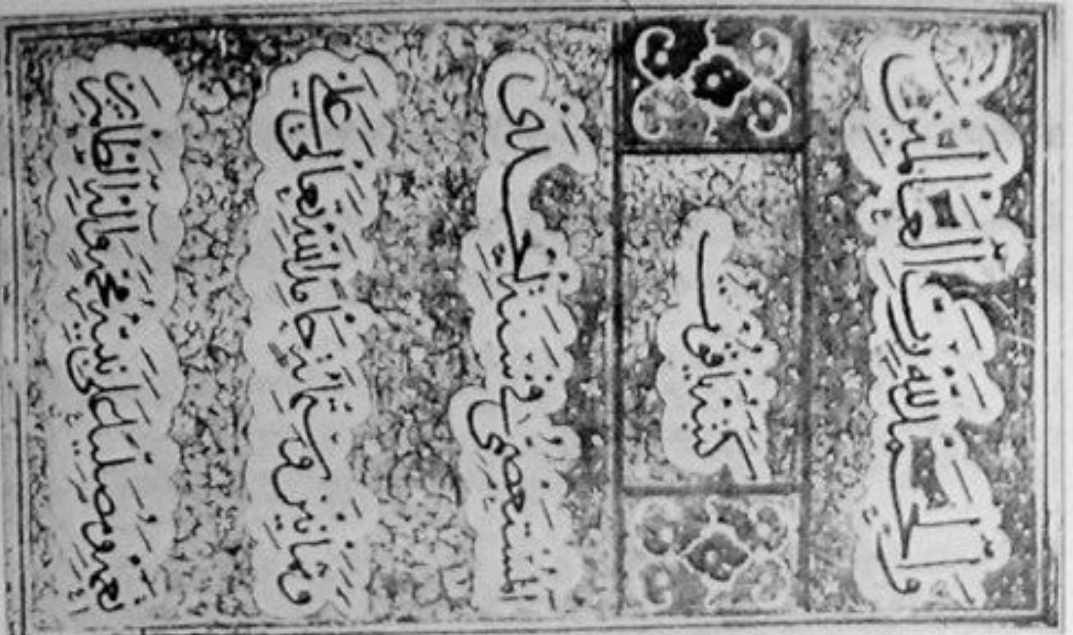 والحمد لله رب العالمين
كتبه ياقوت
المستعصمي في سنة احدى
وثمانين وستمائة حامدا لله تعالى على
نعمه ومصليا على نبيه محمد وآله الطاهرين